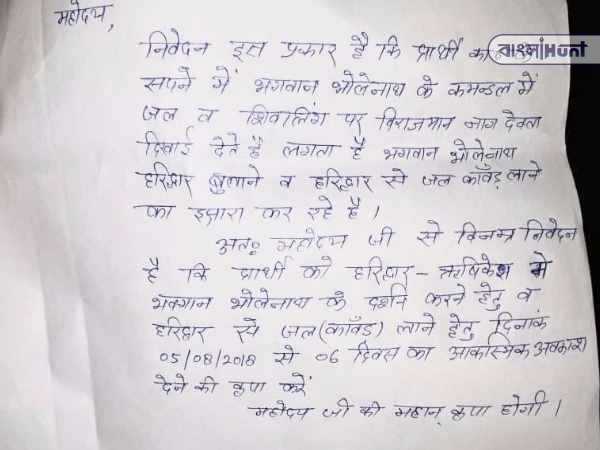 महोदय,
निवेदन इस प्रकार है कि प्रार्थी को
বাংলাHunt
सपने में भगवान भोलेनाथ के कमन्डल में
जल व शिवालिंग पर विराजमान नाग देवता
दिखाई देते हैं लगता है भगवान भोलेनाथ
हरिद्वार बुलाने व हरिद्वार से जल काँवड़ लाने
का इशारा कर रहे है।
अतः महोदय जी से विनम्र निवेदन
है कि प्रार्थी को हरिद्वार - ऋषिकेश मे
भगवान भोलेनाथ के दर्शन करने हेतु व
हरिद्वार से जल (काँवड) लाने हेतु दिनांक
05/08/2018 से 06 दिवस का आकस्मिक अवकाश
देने की कृपा करें
महोदय जी की महान् कृपा होगी।